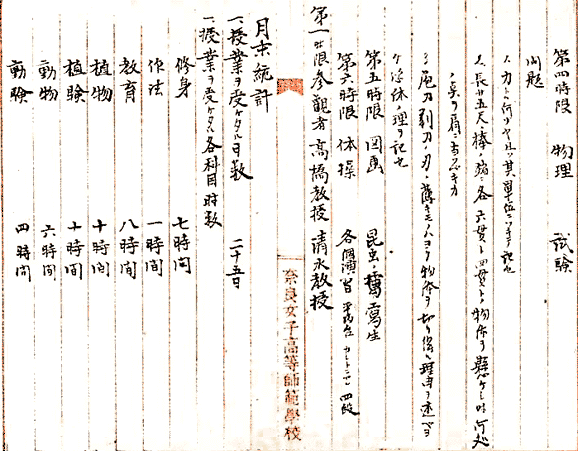 第四時限 物理 試験
問題
1、力トハ何ゾヤ又ハ其単位ニツキテ記セ
2、長サ五尺ノ棒ノ端ニ各六貫ト四貫トノ物体ヲ懸ケシ時何処
ノ点ヲ肩ニ
3、庖刀剃刀ノ刃ノ薄キモノハヨク物体ヲ切リ得ル理由ヲ述ベヨ
理ヲ記セ
第五時限 図画 昆虫ノ写生
第六時限 体操 各個演習 平均台 四段
第一時限参観者 高橋教授 清水教授
奈良女子高等師範學校
月末統計
一、授業ヲ受ケタル日数 二十五日
一、授業ヲ受ケタル各科目時数
修身 七時間
作法 一時間
教育 八時間
植物 十時間
植験 十時間
動物 六時間
動験 四時間